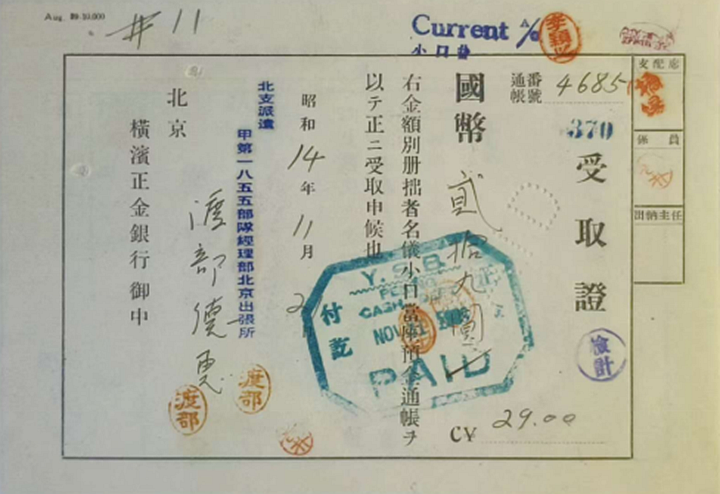 Aug. 89-10,000
#11
Current A/c
小口當
李穎
支配處
係員
出納主任
通帳番號 4685
370
受取證
國幣 貳拾九圓
CV¥ 29.00
右金額別册拙者名儀小口當座預金通帳ヲ
以テ正ニ受取申候也
昭和14年11月2
北支派遣
甲第一八五五部隊經理部北京出張所
渡部
北京
橫濱正金銀行 御中
Y.S.B.
CASH
付訖
NOV
PAID
檢計
渡部
渡部